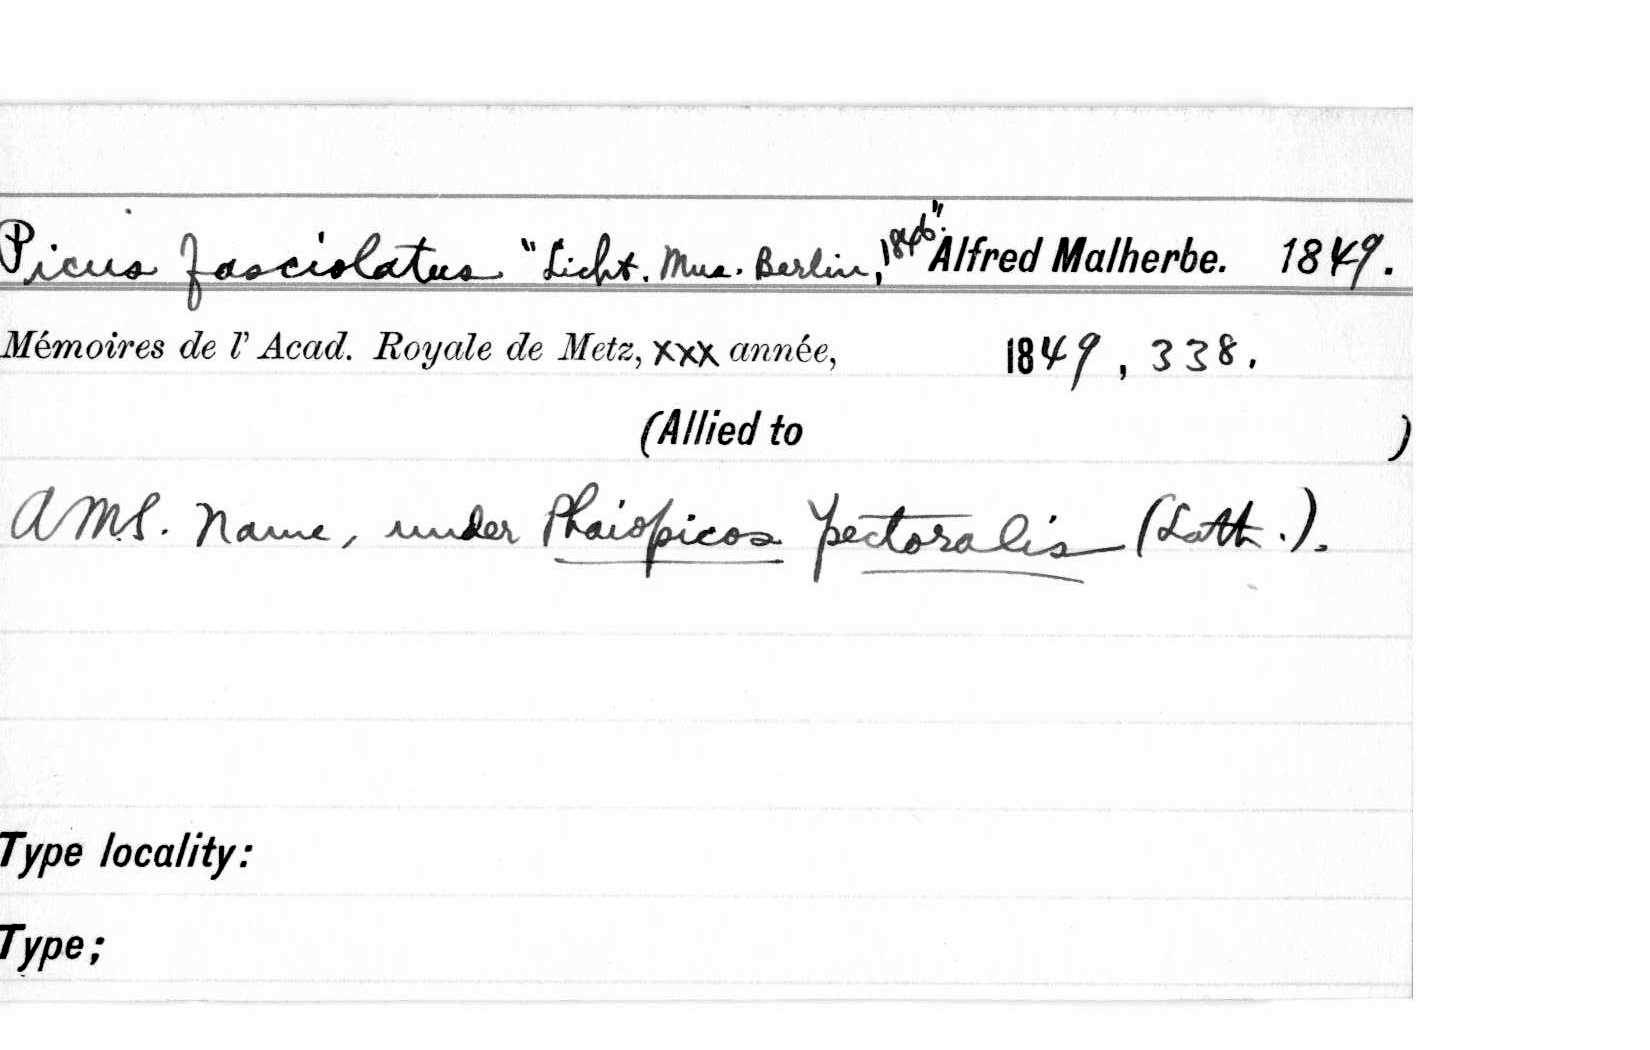 Picus fasciolatus "Licht. Mus. Berlin, 1846". Alfred Malherbe. 1849.
Mémoires de l' Acad. Royale de Metz, XXX année, 1849, 338.
(Allied to )
A MS. Name, under Phaiopicos pectoralis (Lath.).
Type locality:
Type;